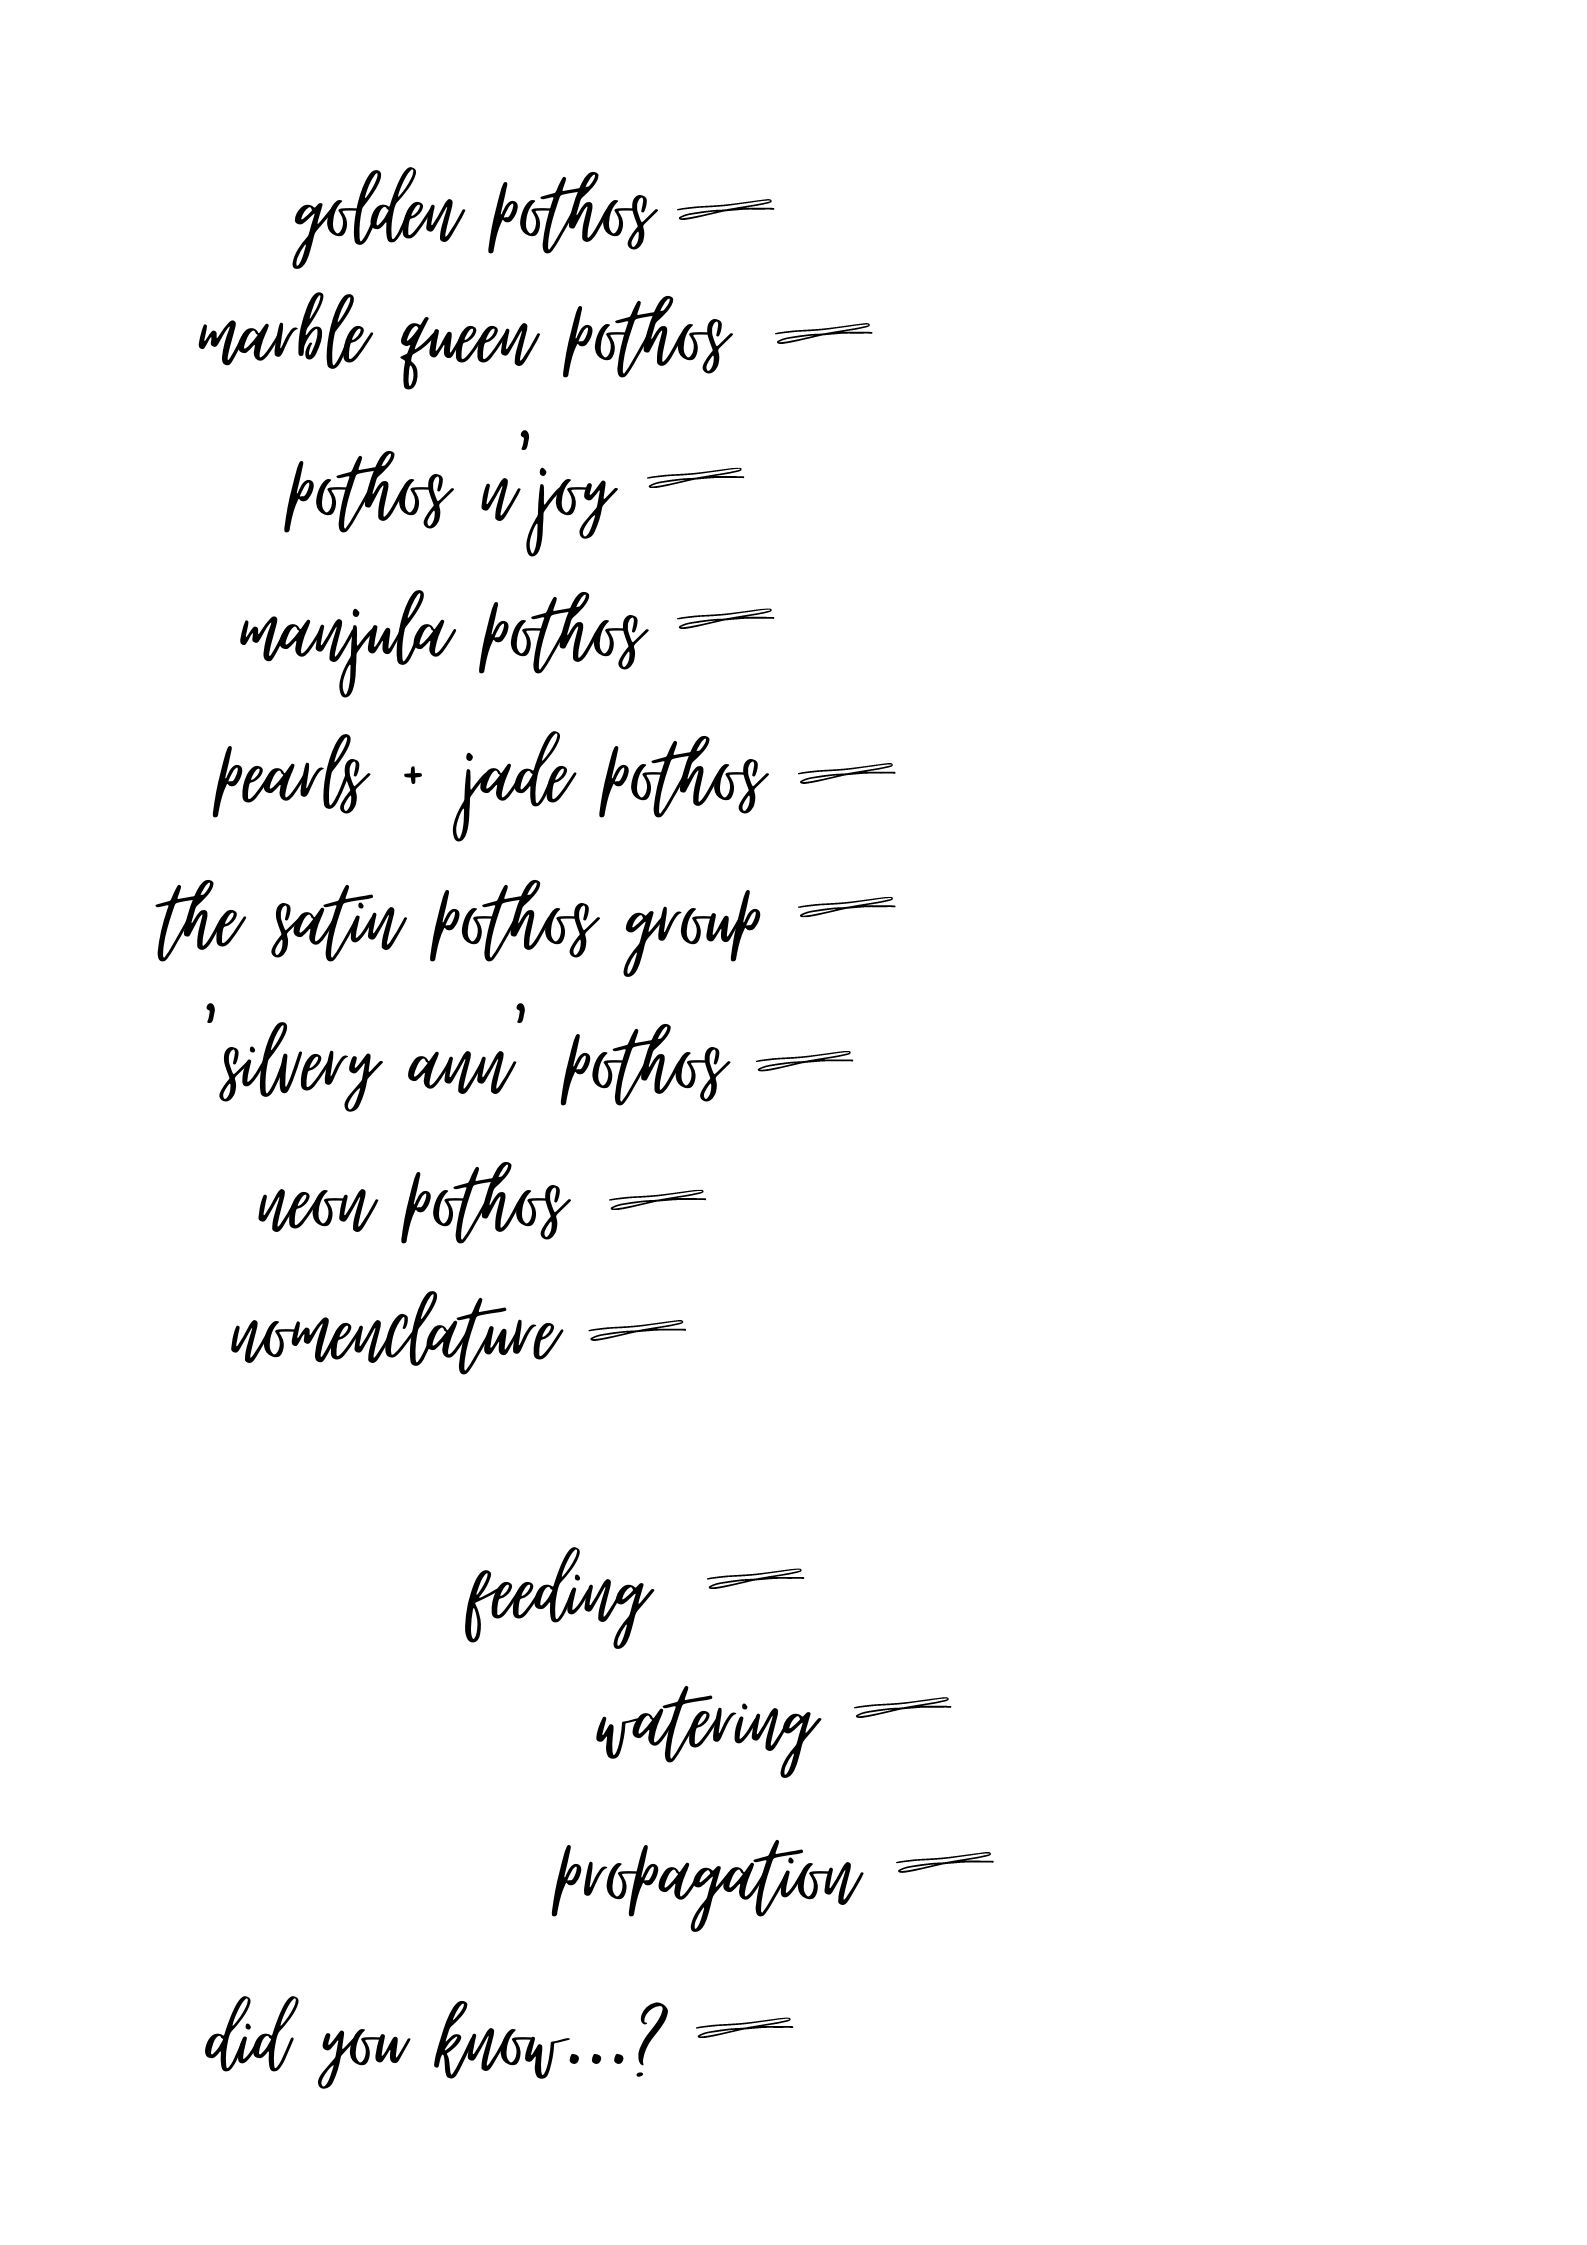 golden pothos
marble queen pothos
pothos n'joy
manjula pothos
pearls + jade pothos
the satin pothos group
'silvery ann' pothos
neon pothos
nomenclature
feeding
watering
propagation
did you know...?